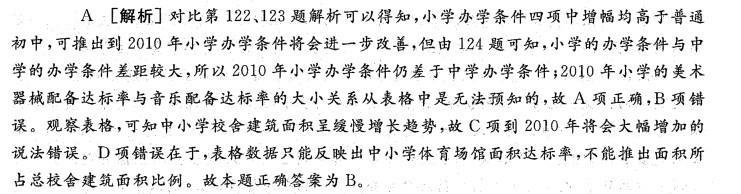 A [解析] 对比第 122、123 题解析可以得知,小学办学条件四项中增幅均高于普通
初中,可推出到 2010 年小学办学条件将会进一步改善,但由 124 题可知,小学的办学条件与中
学的办学条件差距较大,所以 2010 年小学办学条件仍差于中学办学条件;2010 年小学的美术
器械配备达标率与音乐配备达标率的大小关系从表格中是无法预知的,故 A 项正确,B 项错
误。观察表格,可知中小学校舍建筑面积呈缓慢增长趋势,故 C 项到 2010 年将会大幅增加的
说法错误。D 项错误在于,表格数据只能反映出中小学体育场馆面积达标率,不能推出面积所
占总校舍建筑面积比例。故本题正确答案为 B。